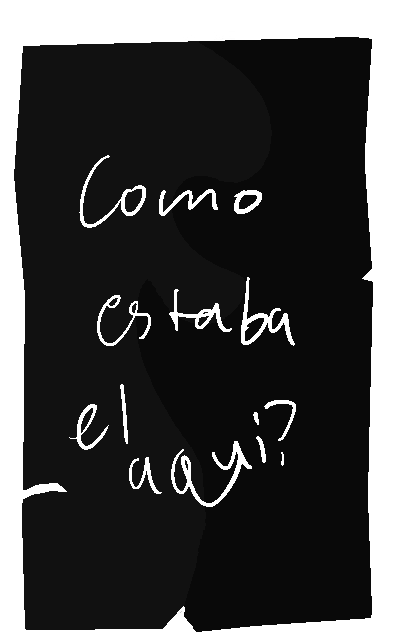 Como
estaba
el
aqui?